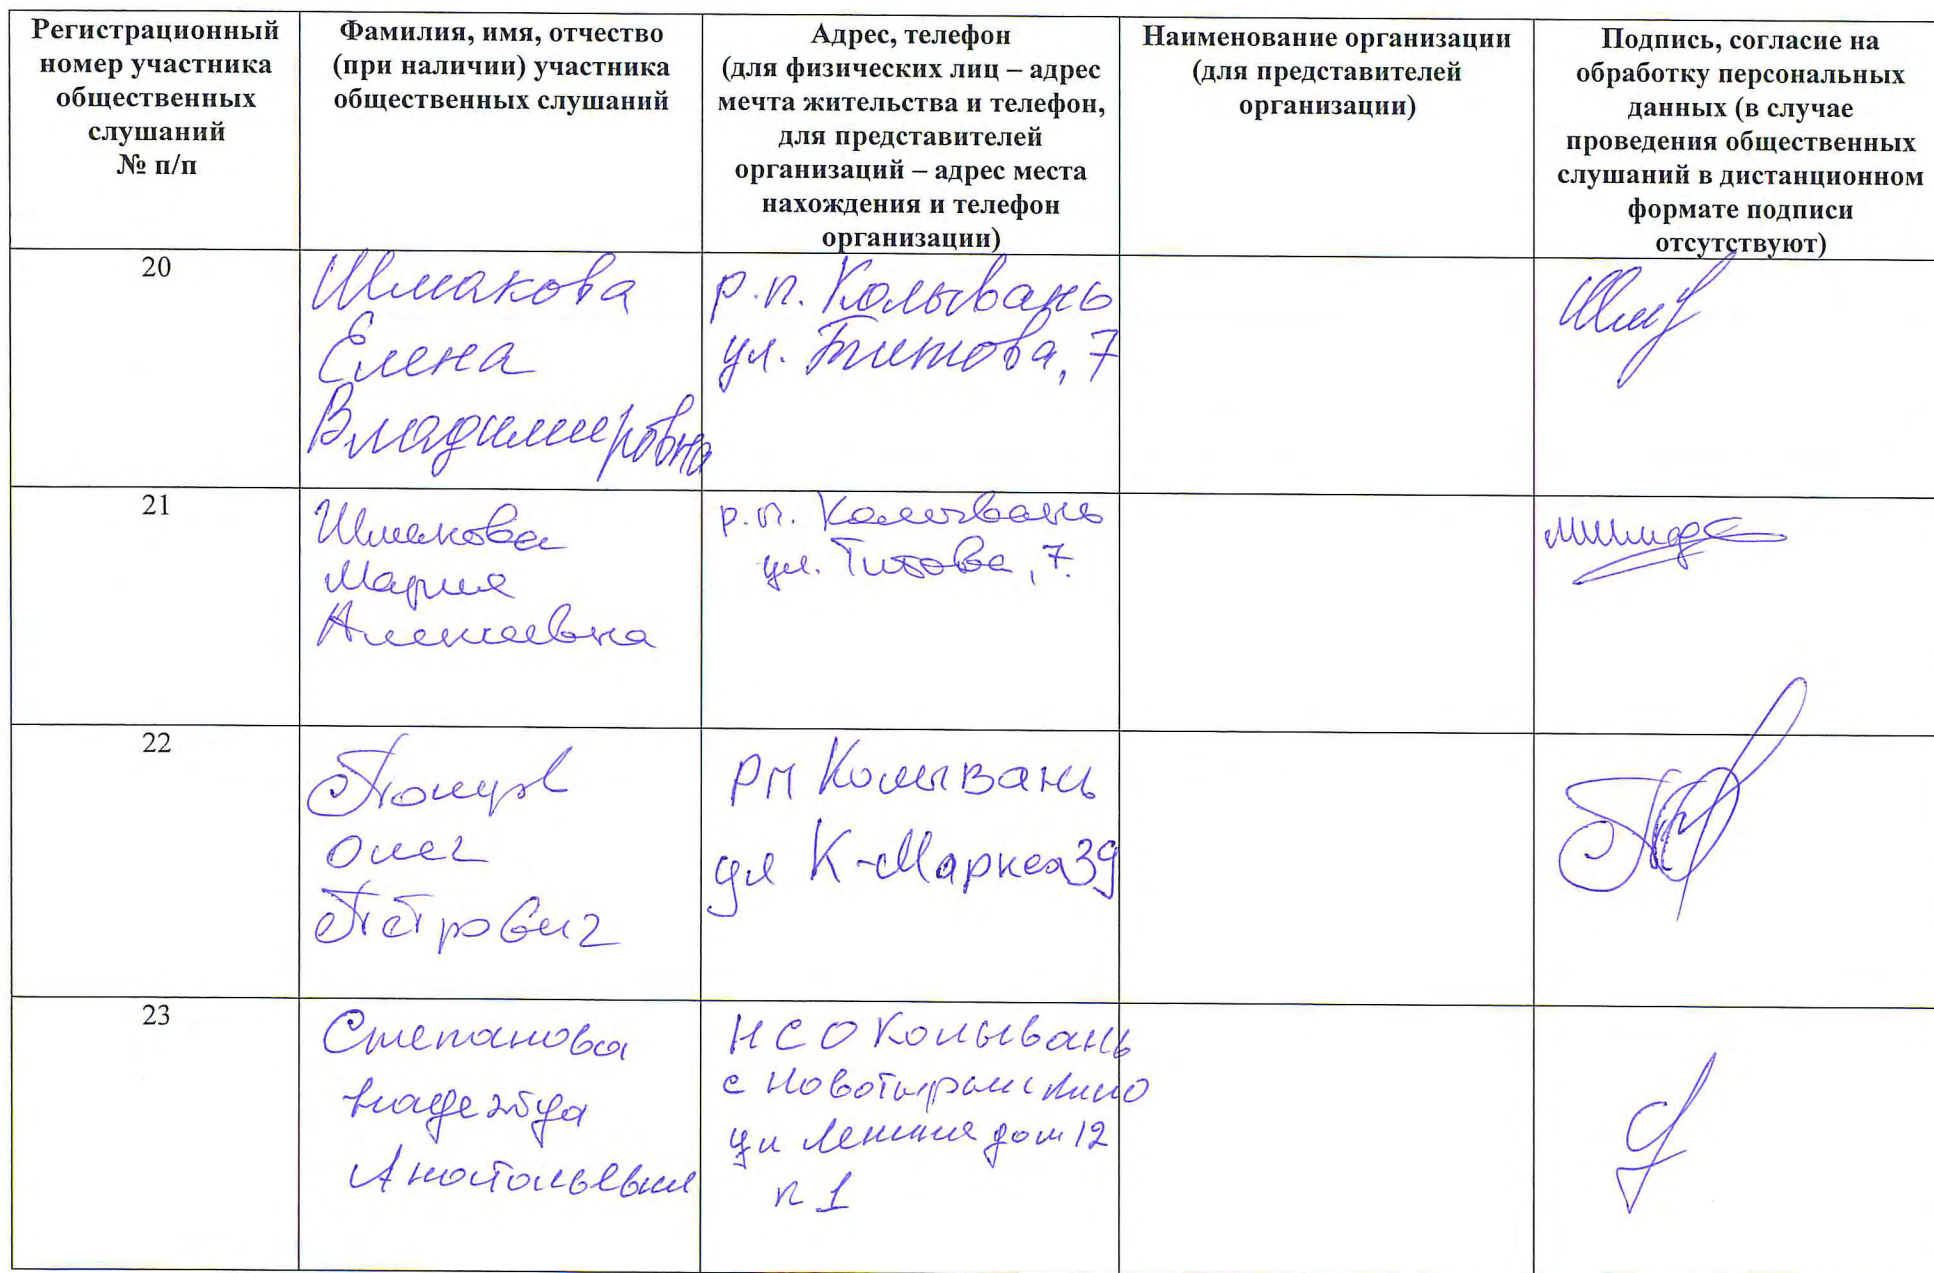 Регистрационный
номер участника
общественных
слушаний
№ п/п
Фамилия, имя, отчество
(при наличии) участника
общественных слушаний
Адрес, телефон
(для физических лиц – адрес
мечта жительства и телефон,
для представителей
организаций – адрес места
нахождения и телефон
организации)
Наименование организации
(для представителей
организации)
Подпись, согласие на
обработку персональных
данных (в случае
проведения общественных
слушаний в дистанционном
формате подписи
отсутствуют)
20
Шмакова
Елена
Владимировна
р.п. Колывань
ул. Титова, 7
21
Шмакова
Мария
Алексеевна
р.п. Колывань
ул. Титова, 7.
22
Олег
Петрович
РП Колывань
ул К-Маркса 39
23
Степанова
Надежда
Анатольевна
НСО Колывань
с
ул Ленина дом 12
п 1